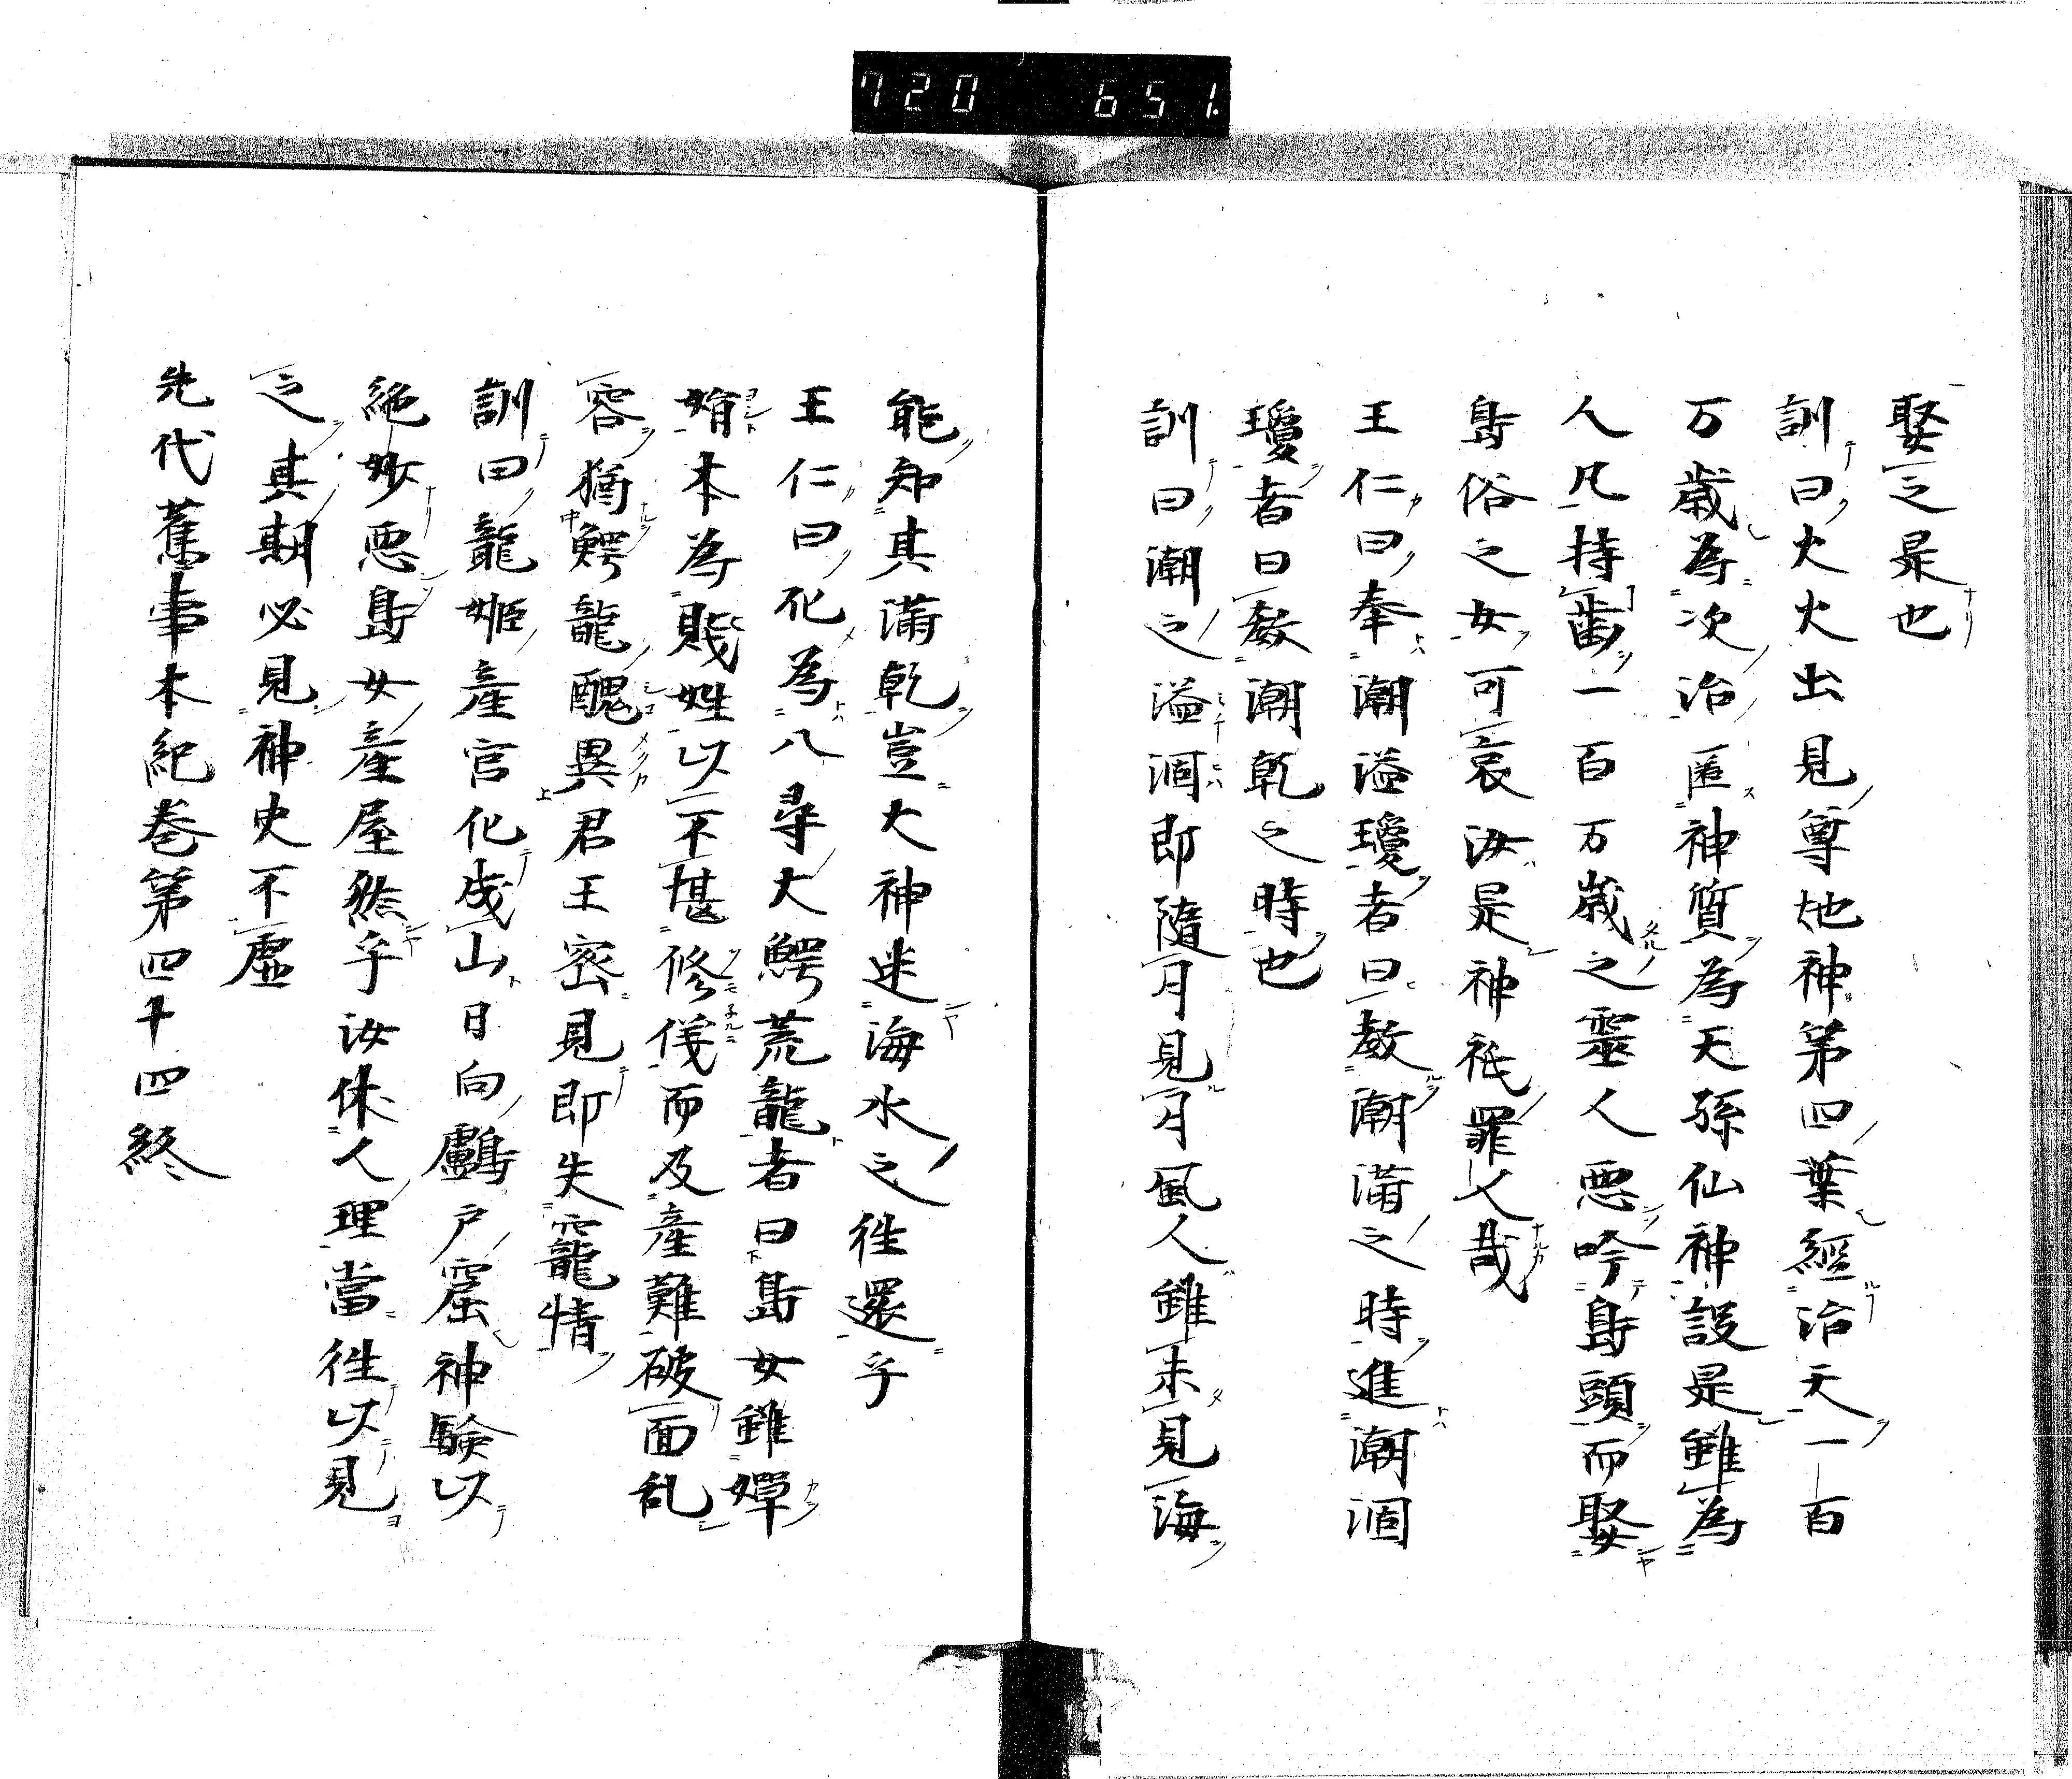 720 651.
娶之是也
訓曰火火出見尊地神第四葉經治天一百
万歳為次治匿神質為天孫仙神設是雖為
人凡持歯一百万歳之靈人惡吟島頭而娶
島俗之女可哀汝是神祇罪人哉
王仁曰奉潮溢瓊者曰教潮満之時進潮涸
瓊者曰教潮乾之時也
訓曰潮之溢涸即隨月見月風人雖未見海
能知其満乾豈大神迷海水之往還乎
王仁曰化為八尋大鰐荒龍者曰島女雖嬋
媚本為賎姓以不堪修儀而及産難破面乱
容猶鰐龍醜異君王密見即失寵情
訓曰龍姫産宮化成山日向鸕戸窟神驗以
絶妙惡島女産屋然乎汝休人理當往以見
之其期必見神史不虚
先代舊事本紀巻第四十四終